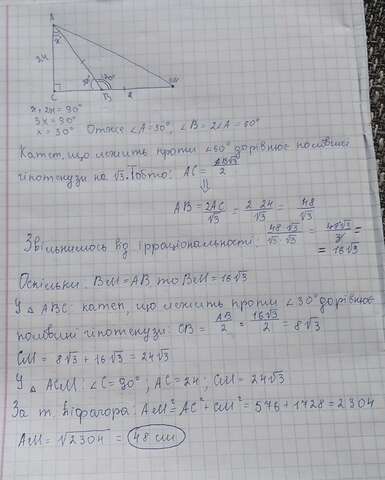 A
24
x
C
B
2x
120°
M
x+2x=90°
3x=90°
x=30°
Отже ∠A=30°, ∠B=2∠A=60°
Катет, що лежить проти ∠60° дорівнює половині
гіпотенузи на √3. Тобто: AC = AB√3/2
⇓
AB = 2AC/√3 = 2·24/√3 = 48/√3
Звільнимось від ірраціональності: 48·√3/√3·√3 = 48√3/3 =
= 16√3
Оскільки BM=AB, то BM=16√3
У △ABC: катет, що лежить проти ∠30° дорівнює
половині гіпотенузи: CB = AB/2 = 16√3/2 = 8√3
CM = 8√3 + 16√3 = 24√3
У △ACM: ∠C=90°; AC=24; CM=24√3
За т. Піфагора: AM²=AC²+CM²=576+1728=2304
AM=√2304 = 48 см